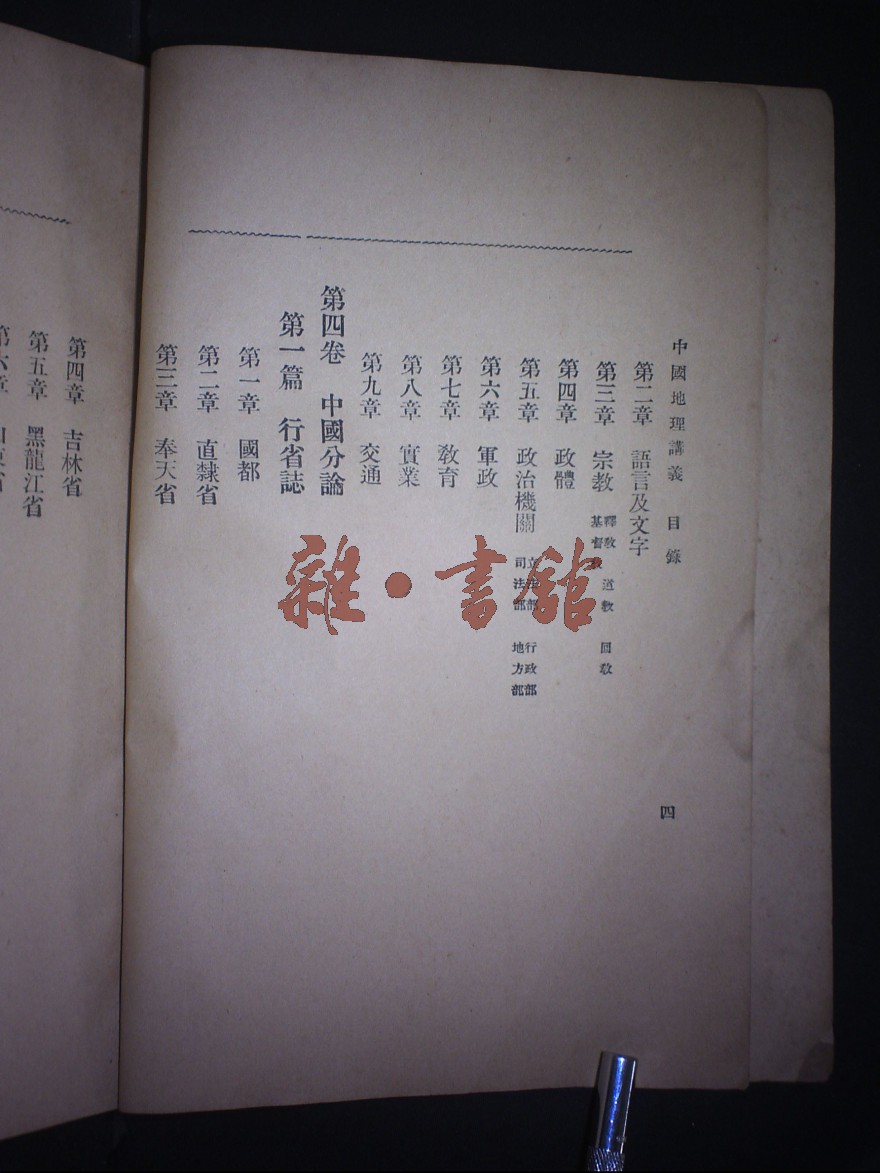 中國地理講義 目錄
四
第二章 語言及文字
第三章 宗教 釋教 道教 回教
基督教
第四章 政體
第五章 政治機關 立法部 行政部
司法部 地方部
第六章 軍政
第七章 教育
第八章 實業
第九章 交通
第四卷 中國分論
第一篇 行省誌
第一章 國都
第二章 直隸省
第三章 奉天省
第四章 吉林省
第五章 黑龍江省
雜·書館